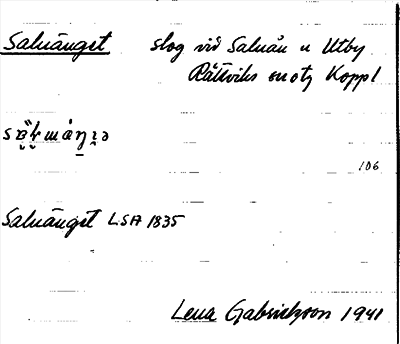 Saluänget slog vid Saluån u Utby
Rättviks sn o tg Koppl
106
Saluänget LSA 1835
Lena Gabrielsson 1941